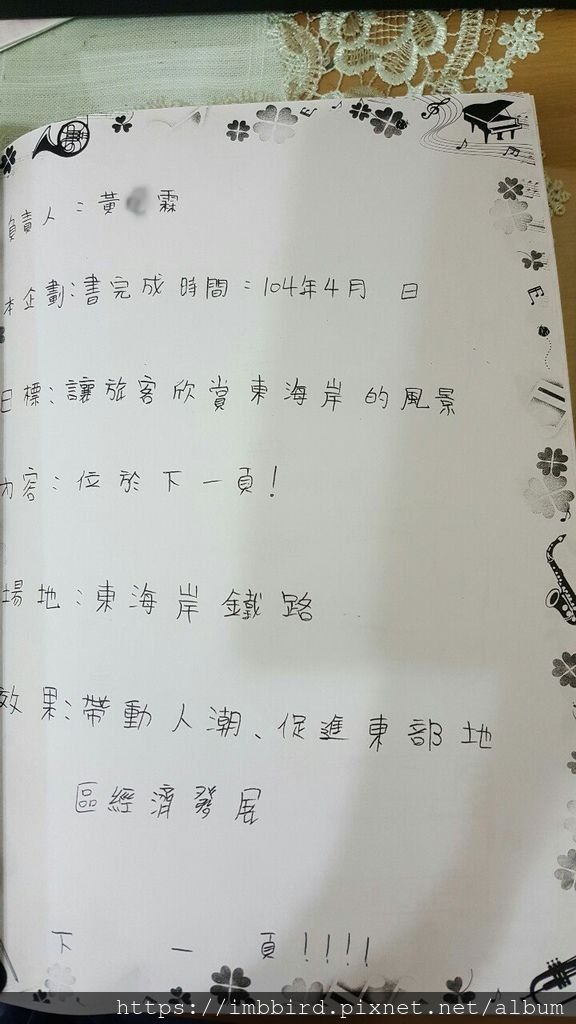 負責人：黃 霖
本企劃書完成時間：104年4月 日
目標：讓旅客欣賞東海岸的風景
內容：位於下一頁！
場地：東海岸鐵路
效果：帶動人潮、促進東部地
區經濟發展
下 一 頁！！！！
https://imbbird.pixnet.net/album